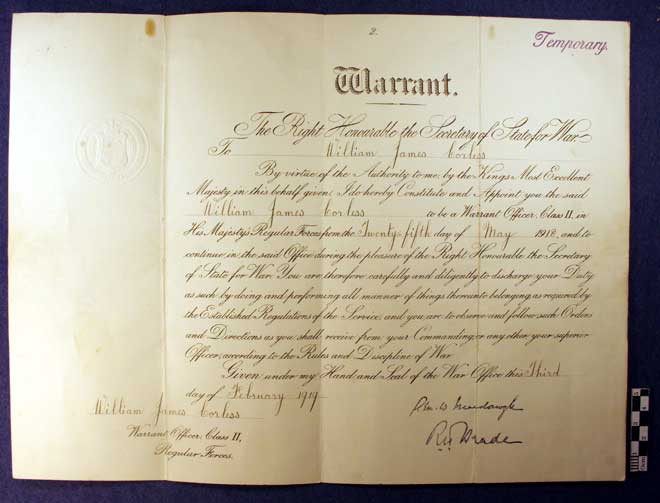 2.
Temporary.
Warrant.
The Right Honourable the Secretary of State for War
To William James Corless
By virtue of the Authority to me by the King's Most Excellent
Majesty in this behalf given, I do hereby Constitute and Appoint you the said
William James Corless to be a Warrant Officer, Class II, in
His Majesty's Regular Forces from the Twenty fifth day of May 1918, and to
continue in the said Office during the pleasure of the Right Honourable the Secretary
of State for War. You are therefore carefully and diligently to discharge your Duty
as such by doing and performing all manner of things thereunto belonging, as required by
the Established Regulations of the Service, and you are to observe and follow such Orders
and Directions as you shall receive from your Commanding, or any other your superior
Officer, according to the Rules and Discipline of War
Given under my Hand and Seal of the War Office this Third
day of February 1919
William James Corless
Warrant Officer, Class II,
Regular Forces.